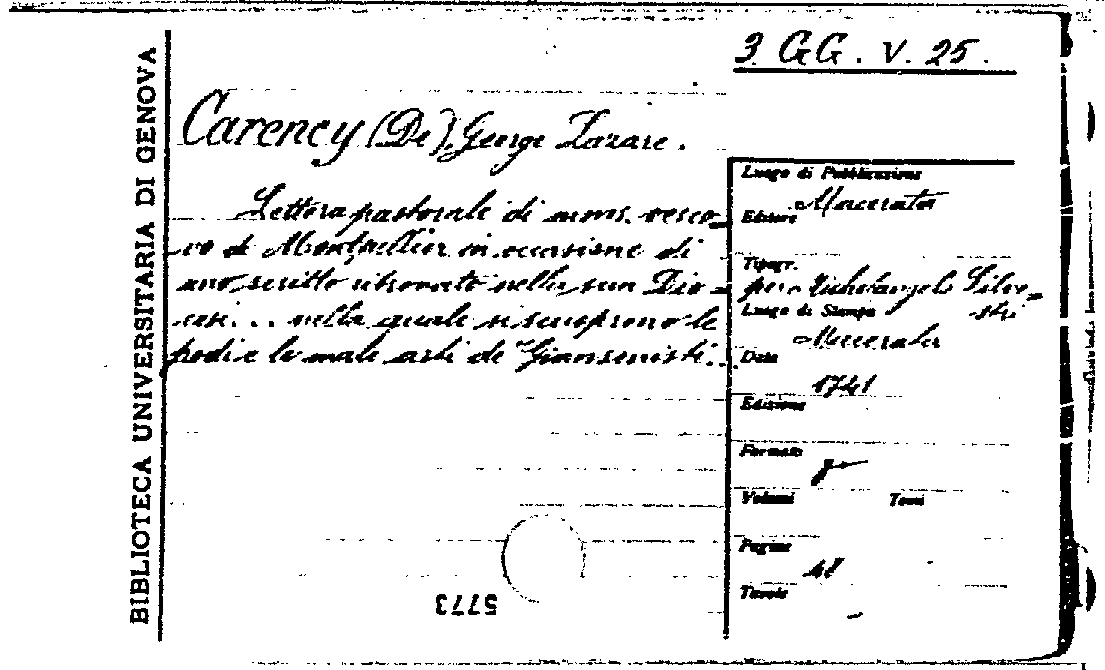 3 GG. V. 25.
BIBLIOTECA UNIVERSITARIA DI GENOVA
Carency (De), George Lazare.
Lettera pastorale di mons. vesco-
vo di Montpellier in occasione di
uno scritto ritrovato nella sua Dio-
cesi... nella quale si scuoprono le
frodi e le male arti de' Giansenisti...
Luogo di Pubblicazione
Macerata
Editore
Tipogr.
per Michelangelo Silve-
stri
Luogo di Stampa
Macerata
Data
1741
Edizione
Formato
8°
Volumi Tomi
Pagine
48
Tavole
—
5773